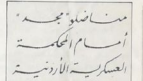 مناضلو "مجد"
أمام المحكمة
العسكرية الأردنية